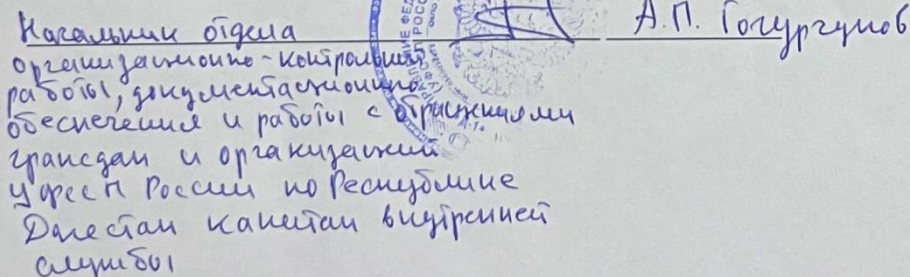 Начальник отдела А.П. Гогургунов
организационно-контрольной
работы, документационно
обеспечения и работы с обращениями
граждан и организаций
УФССП России по Республике
Дагестан капитан внутренней
службы